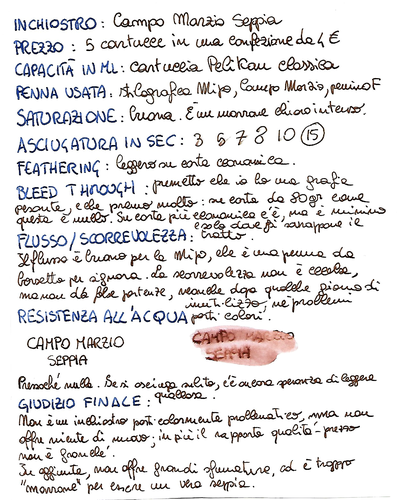 INCHIOSTRO: Campo Marzio Seppia
PREZZO: 5 cartucce in una confezione da 4 €
CAPACITÀ IN ML: cartuccia Pelikan classica
PENNA USATA: stilografica Mipo, Campo Marzio, pennino F
SATURAZIONE: buona. È un marrone chiaro intenso.
ASCIUGATURA IN SEC: 3 5 7 8 10 15
FEATHERING: leggero su carta economica.
BLEED THROUGH: premetto che io ho una grafia
pesante, e che premo molto: su carta da 80 gr come
questa è nullo. Su carta più economica c'è, ma è minimo
e solo dove si sovrappone il
FLUSSO/SCORREVOLEZZA: tratto.
Il flusso è buono per la Mipo, che è una penna da
borsetta per signora. La scorrevolezza non è eccelsa,
ma non dà false partenze, neanche dopo qualche giorno di
inutilizzo, né problemi
RESISTENZA ALL'ACQUA particolari.
CAMPO MARZIO
SEPPIA
CAMPO MARZIO
SEPPIA
Pressoché nulla. Se si asciuga subito, c'è ancora speranza di leggere
GIUDIZIO FINALE: qualcosa.
Non è un inchiostro particolarmente problematico, ma non
offre niente di nuovo; in più il rapporto qualità-prezzo
non è granché.
In aggiunta, non offre grandi sfumature, ed è troppo
"marrone" per essere un vero seppia.